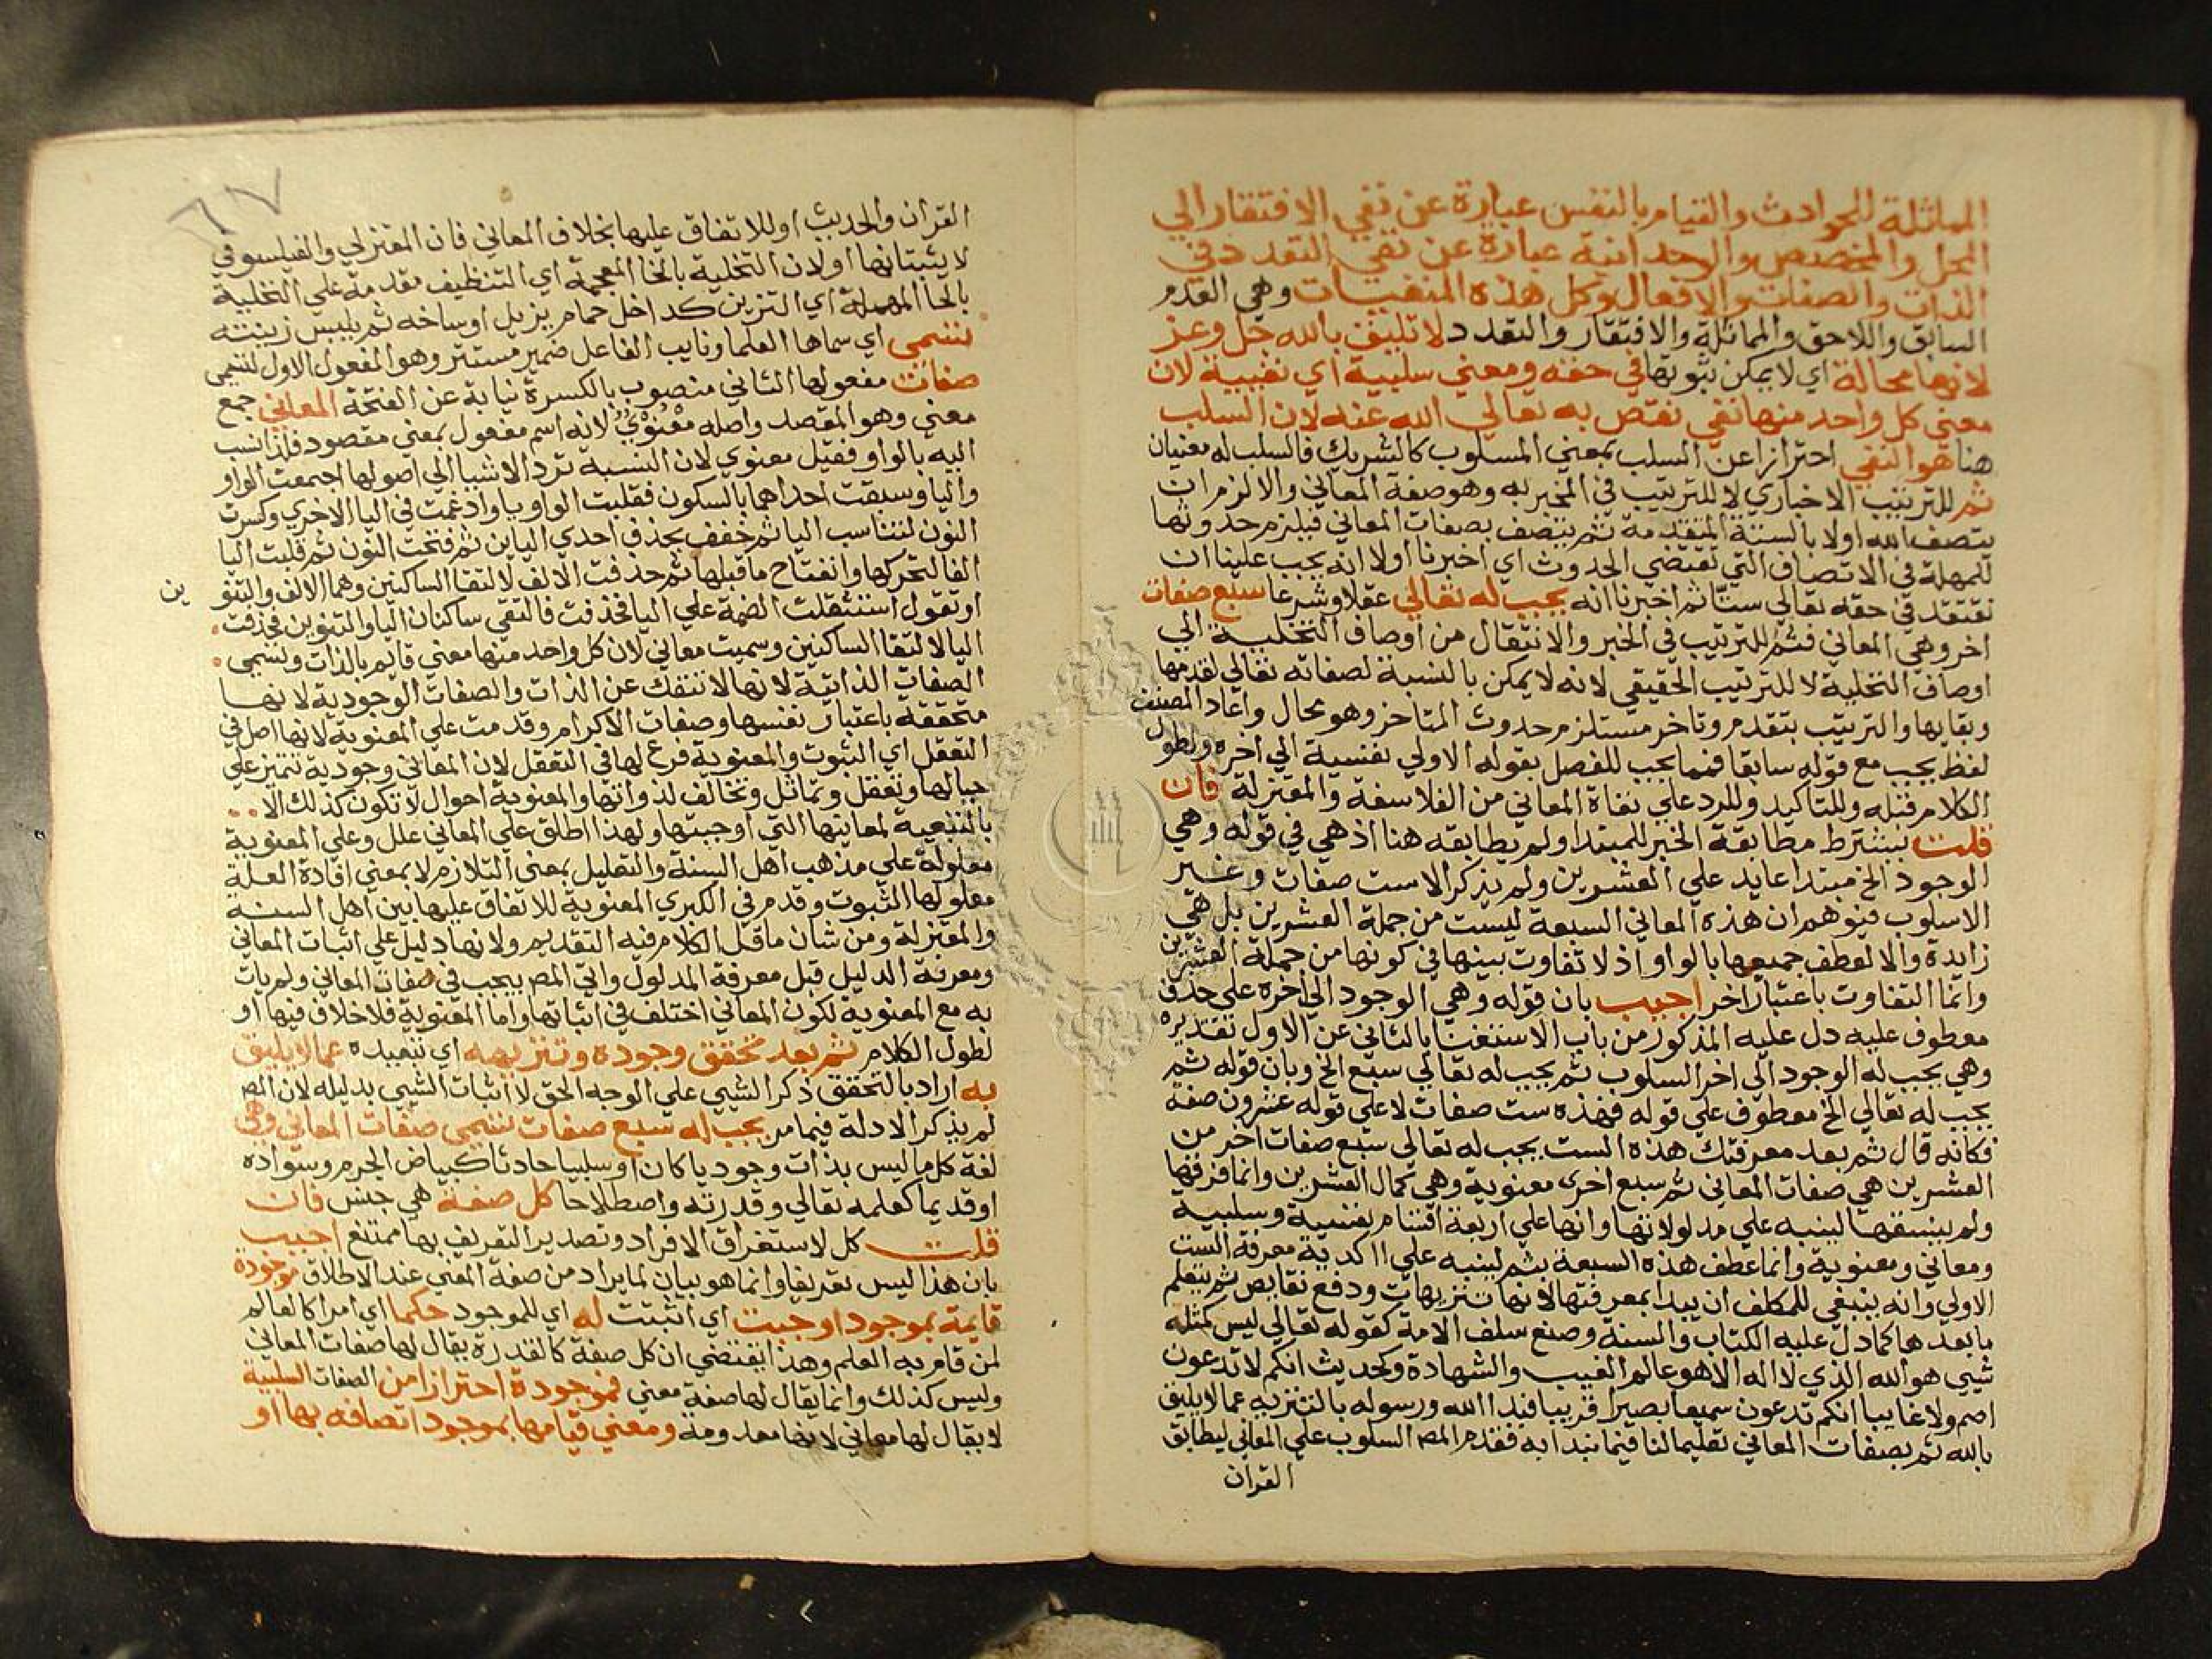 المماثلة للحوادث والقيام بالنفس عبارة عن نفي الافتقار الي
المحل والمخصص والوحدانية عبارة عن نفي التعدد في
الذات والصفات والافعال وكل هذه المنفيات وهي العدم
السابق واللاحق والمماثلة والافتقار والتعدد لا تليق بالله جل وعز
لانها محالة اي لا يمكن ثبوتها في حقه ومعني سلبية اي نفيية لان
معني كل واحد منها نفي نقص به تعالي الله عنه لان السلب
هنا هو النفي احترازا عن السلب بمعني المسلوب كالشريك فالسلب له معنيان
ثم للترتيب الاخباري لا للترتيب في المخبر به وهو صفة المعاني والا لزم ان
يتصف الله اولا بالستة المتقدمة ثم يتصف بصفات المعاني فيلزم حدوثها
للمهلة في الاتصاف التي تقتضي الحدوث اي اخبرنا اولا انه يجب علينا ان
نعتقد في حقه تعالي ستا ثم اخبرنا انه يجب له تعالي عقلا وشرعا سبع صفات
اخر وهي المعاني فثم للترتيب في الخبر والانتقال من اوصاف التخلية الي
اوصاف التحلية لا للترتيب الحقيقي لانه لا يمكن بالنسبة لصفاته تعالي لقدمها
وبقايها والترتيب بتقدم وتاخر مستلزم حدوث المتاخر وهو محال واعاد المصنف
لفظ يجب مع قوله سابقا فمما يجب للفصل بقوله الاولي نفسية الي اخره ولطول
الكلام قبله وللتاكيد وللرد علي نفاة المعاني من الفلاسفة والمعتزلة فان
قلت يشترط مطابقة الخبر للمبتدا ولم يطابقه هنا اذ هي في قوله وهي
الوجود الخ مبتدا عايد علي العشرين ولم يذكر الا ست صفات وغير
الاسلوب فتوهم ان هذه المعاني السبعة ليست من جملة العشرين بل هي
زايدة والا لعطف جميعها بالواو اذ لا تفاوت بينها في كونها من جملة العشرين
وانما التفاوت باعتبار اخر اجيب بان قوله وهي الوجود الي اخره علي حذف
معطوف عليه دل عليه المذكور من باب الاستغنا بالثاني عن الاول تقديره
وهي يجب له الوجود الي اخر السلوب ثم يجب له تعالي سبع الخ وبان قوله ثم
يجب له تعالي الخ معطوف علي قوله فهذه ست صفات لا علي قوله عشرون صفة
فكانه قال ثم بعد معرفتك هذه الست يجب له تعالي سبع صفات اخر من
العشرين هي صفات المعاني ثم سبع اخري معنوية وهي كمال العشرين وانما فرقها
ولم ينسقها لينبه علي مدلولاتها وانها علي اربعة اقسام نفسية وسلبية
ومعاني ومعنوية وانما عطف هذه السبعة بثم لينبه علي اكدية معرفة الست
الاولي وانه ينبغي للمكلف ان يبدا بمعرفتها لانها تنزيهات ودفع نقايص ثم يتعلم
ما بعدها كما دل عليه الكتاب والسنة وصنع سلف الامة كقوله تعالي ليس كمثله
شيي هو الله الذي لا اله الا هو عالم الغيب والشهادة وكحديث انكم لا تدعون
اصم ولا غايبا انكم تدعون سميعا بصيرا قريبا فبدا الله ورسوله بالتنزيه عما لا يليق
بالله ثم بصفات المعاني تعليما لنا فيما نبدا به فقدم المص السلوب علي المعاني ليطابق
القران
٦٧
القران والحديث او للاتفاق عليها بخلاف المعاني فان المعتزلي والفيلسوفي
لا يثبتانها او لان التخلية بالخا المعجمة اي التنظيف مقدمة علي التحلية
بالحا المهملة اي التزين كداخل حمام يزيل اوساخه ثم يلبس زينته
تسمي اي سماها العلما ونايب الفاعل ضمير مستتر وهو المفعول الاول لتسمي
صفات مفعولها الثاني منصوب بالكسرة نيابة عن الفتحة المعاني جمع
معني وهو المقصد واصله معنوي لانه اسم مفعول بمعني مقصود فلذا نسب
اليه بالواو فقيل معنوي لان النسبة ترد الاشيا الي اصولها اجتمعت الواو
واليا وسبقت احداهما بالسكون فقلبت الواو يا وادغمت في اليا الاخري وكسرت
النون لتناسب اليا ثم خفف بحذف احدي اليايين ثم فتحت النون ثم قلبت اليا
الفا لتحركها وانفتاح ما قبلها ثم حذفت الالف لالتقا الساكنين وهما الالف والتنو
ين
او تقول استثقلت الضمة علي اليا فحذفت فالتقي ساكنان اليا والتنوين فحذفت
اليا لالتقا الساكنين وسميت معاني لان كل واحد منها معني قايم بالذات وتسمي
الصفات الذاتية لانها لا تنفك عن الذات والصفات الوجودية لانها
متحققة باعتبار نفسها وصفات الاكرام وقدمت علي المعنوية لانها اصل في
التعقل اي الثبوت والمعنوية فرع لها في التعقل لان المعاني وجودية تتميز علي
حيالها وتعقل وتماثل وتخالف لذواتها والمعنوية احوال لا تكون كذلك الا
بالتبعية لمعانيها التي اوجبتها ولهذا اطلق علي المعاني علل وعلي المعنوية
معلولة علي مذهب اهل السنة والتعليل بمعني التلازم لا بمعني افادة العلة
معلولها الثبوت وقدم في الكبري المعنوية للاتفاق عليها بين اهل السنة
والمعتزلة ومن شان ما قل الكلام فيه التقديم ولانها دليل علي اثبات المعاني
ومعرفة الدليل قبل معرفة المدلول واتي المص بيجب في صفات المعاني ولم يات
به مع المعنوية لكون المعاني اختلف في اثباتها واما المعنوية فلا خلاف فيها او
لطول الكلام ثم بعد تحقق وجوده وتنزيهه اي تبعيده عما لا يليق
به اراد بالتحقق ذكر الشيي علي الوجه الحق لا اثبات الشيي بدليله لان المص
لم يذكر الادلة فيما مر يجب له سبع صفات تسمي صفات المعاني وهي
لغة كل ما ليس بذات وجوديا كان او سلبيا حادثا كبياض الجرم وسواده
او قديما كعلمه تعالي وقدرته واصطلاحا كل صفة هي جنس فان
قلت كل لاستغراق الافراد وتصدير التعريف بها ممتنع اجيب
بان هذا ليس تعريفا وانما هو بيان لما يراد من صفة المعني عند الاطلاق موجودة
قايمة بموجود اوجبت اي اثبتت له اي للموجود حكما اي امرا كالعالم
لمن قام به العلم وهذا يقتضي ان كل صفة كالقدرة يقال لها صفات المعاني
وليس كذلك وانما يقال لها صفة معني فموجودة احترازا من الصفات السلبية
لا يقال لها معاني لانها معدومة ومعني قيامها بموجود اتصافه بها او